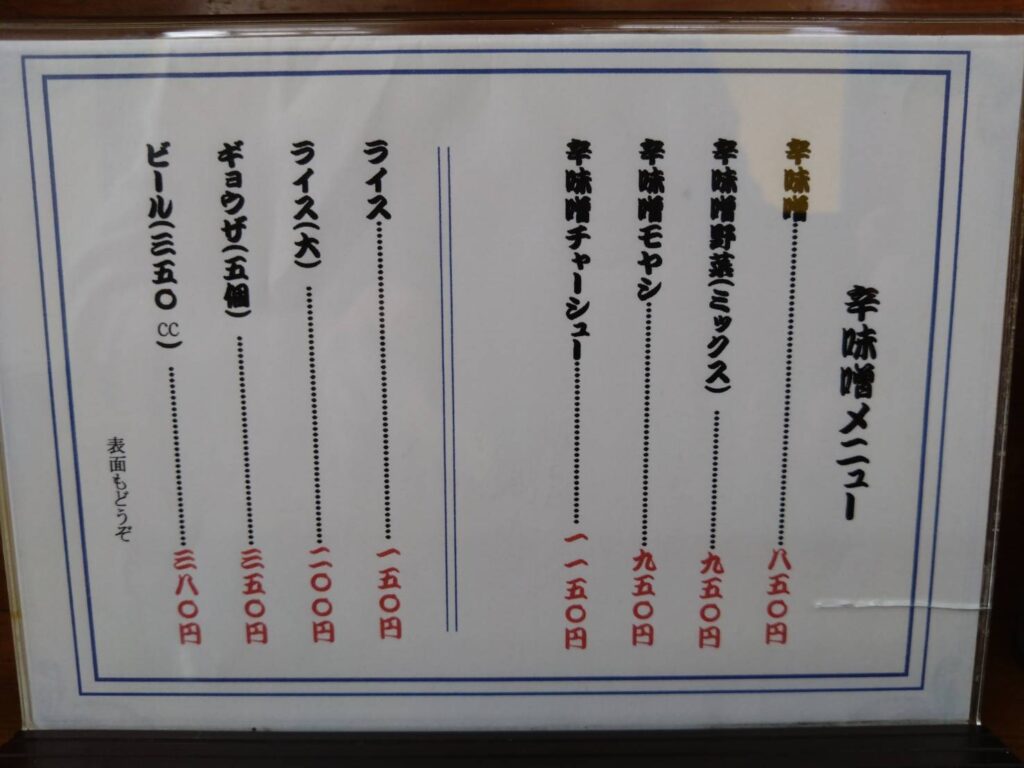 辛味噌メニュー
辛味噌…………八五〇円
辛味噌野菜(ミックス)…………九五〇円
辛味噌モヤシ…………九五〇円
辛味噌チャーシュー…………一一五〇円
ライス…………一五〇円
ライス(大)…………二〇〇円
ギョウザ(五個)…………三五〇円
ビール(三五〇cc)…………三八〇円
表面もどうぞ